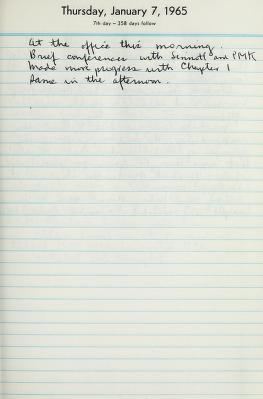 Thursday, January 7, 1965
7th day – 358 days follow
At the office this morning.
Brief conferences with Sennott and PMK
Made more progress with Chapter 1
Same in the afternoon.